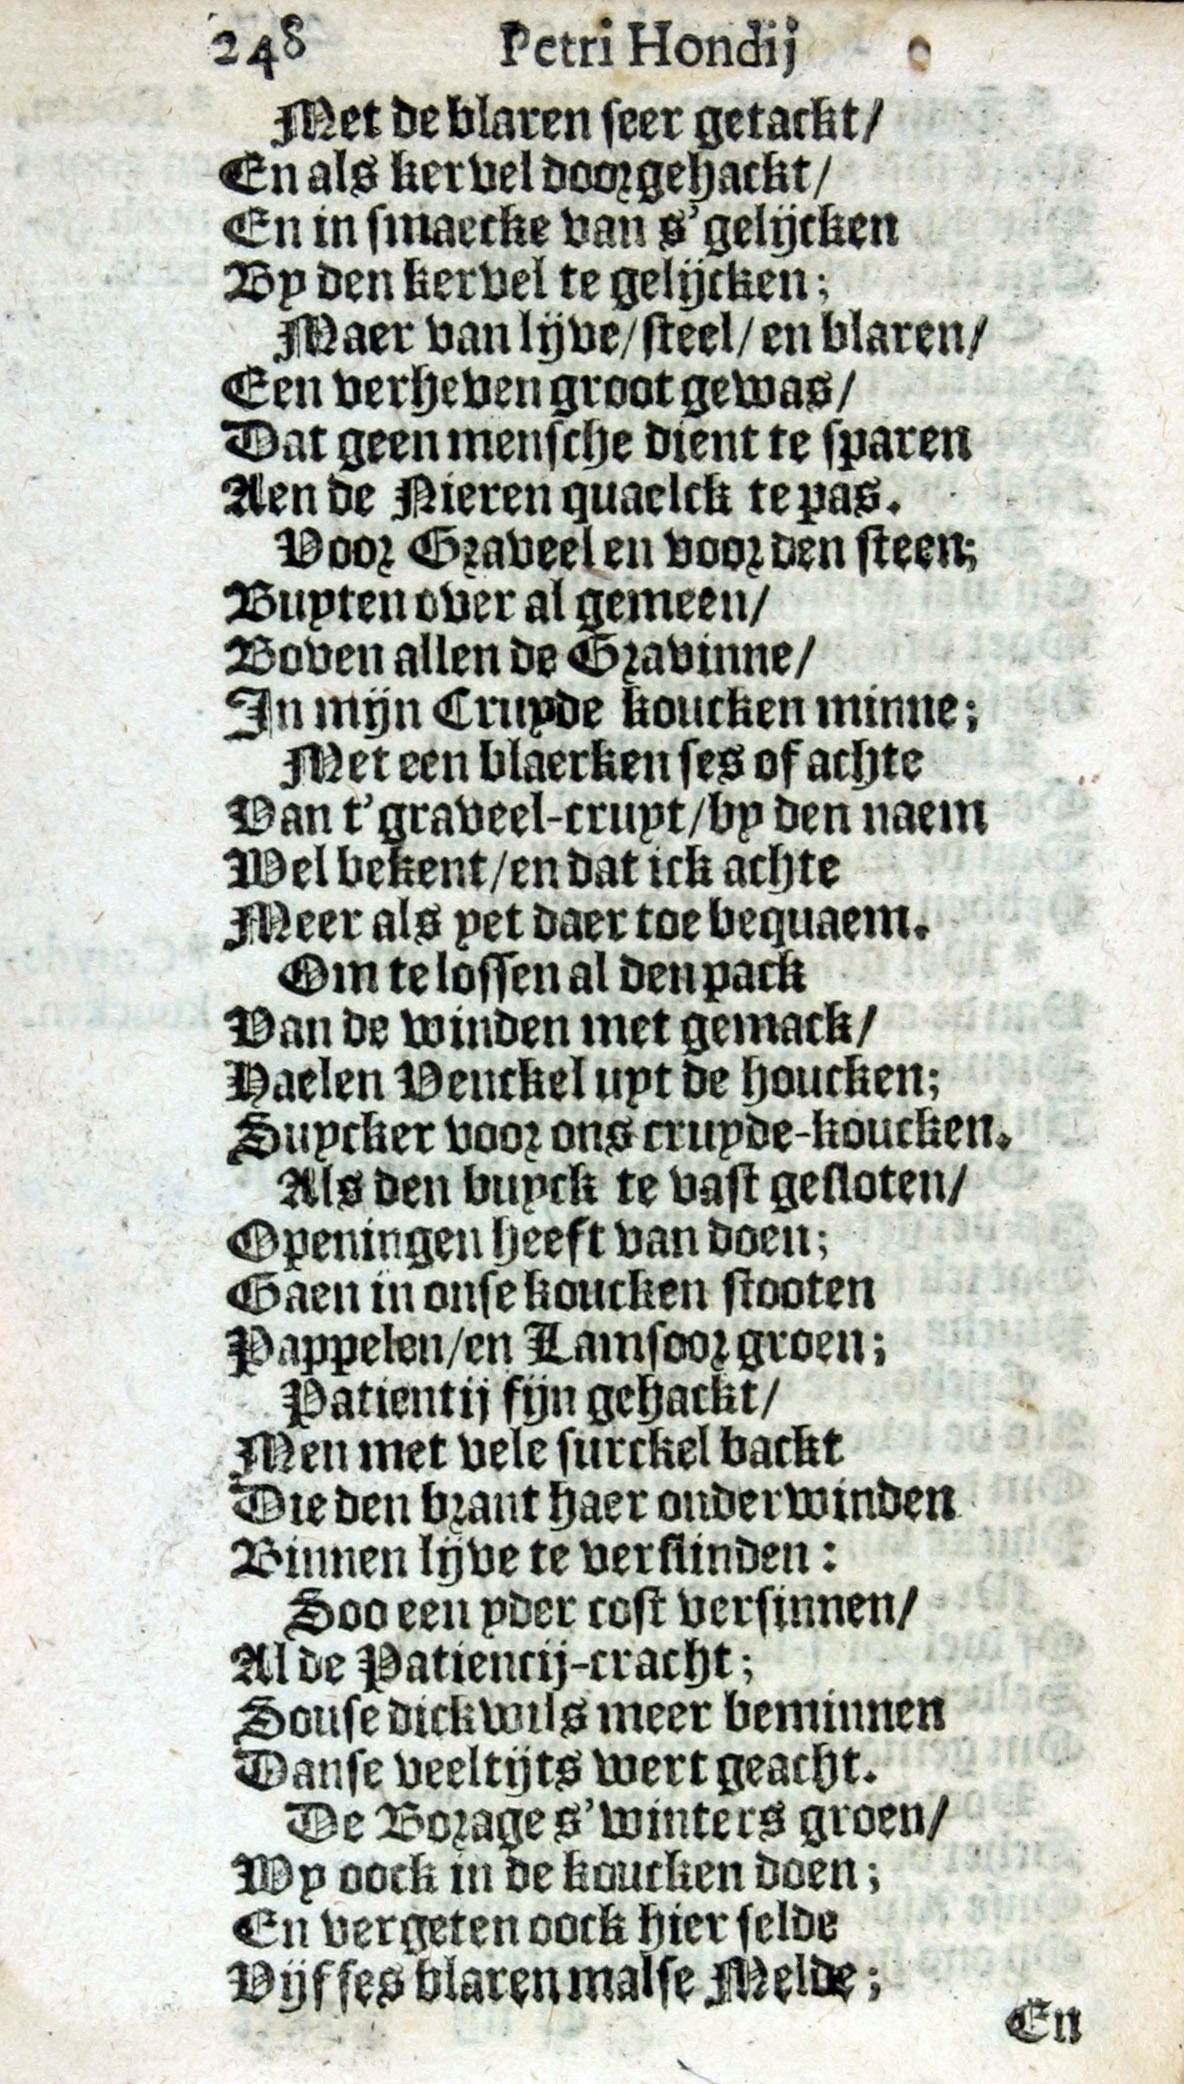 248 Petri Hondij
Met de blaren seer getackt/
En als kervel doorgehackt/
En in smaecke van s'gelijcken
By den kervel te gelijcken;
Maer van lijve/steel/en blaren/
Een verheven groot gewas/
Dat geen mensche dient te sparen
Aen de Nieren quaelck te pas.
Voor Graveel en voor den steen;
Buyten over al gemeen/
Boven allen de Gravinne/
In mijn Cruyde koucken minne;
Met een blaerken ses of achte
Van t'graveel-cruyt/by den naem
Wel bekent/en dat ick achte
Meer als yet daer toe bequaem.
Om te lossen al den pack
Van de winden met gemack/
Haelen Venckel uyt de houcken;
Suycker voor ons cruyde-koucken.
Als den buyck te vast gesloten/
Openingen heeft van doen;
Gaen in onse koucken stooten
Pappelen/en Lamsoor groen;
Patientij fijn gehackt/
Men met vele surckel backt
Die den brant haer onderwinden
Binnen lijve te verslinden:
Soo een yder cost versinnen/
Al de Patiencij-cracht;
Souse dickwils meer beminnen
Danse veeltijts wert geacht.
De Borage s'winters groen/
Wy oock in de koucken doen;
En vergeten oock hier selde
Vijf ses blaren malse Melde;
En